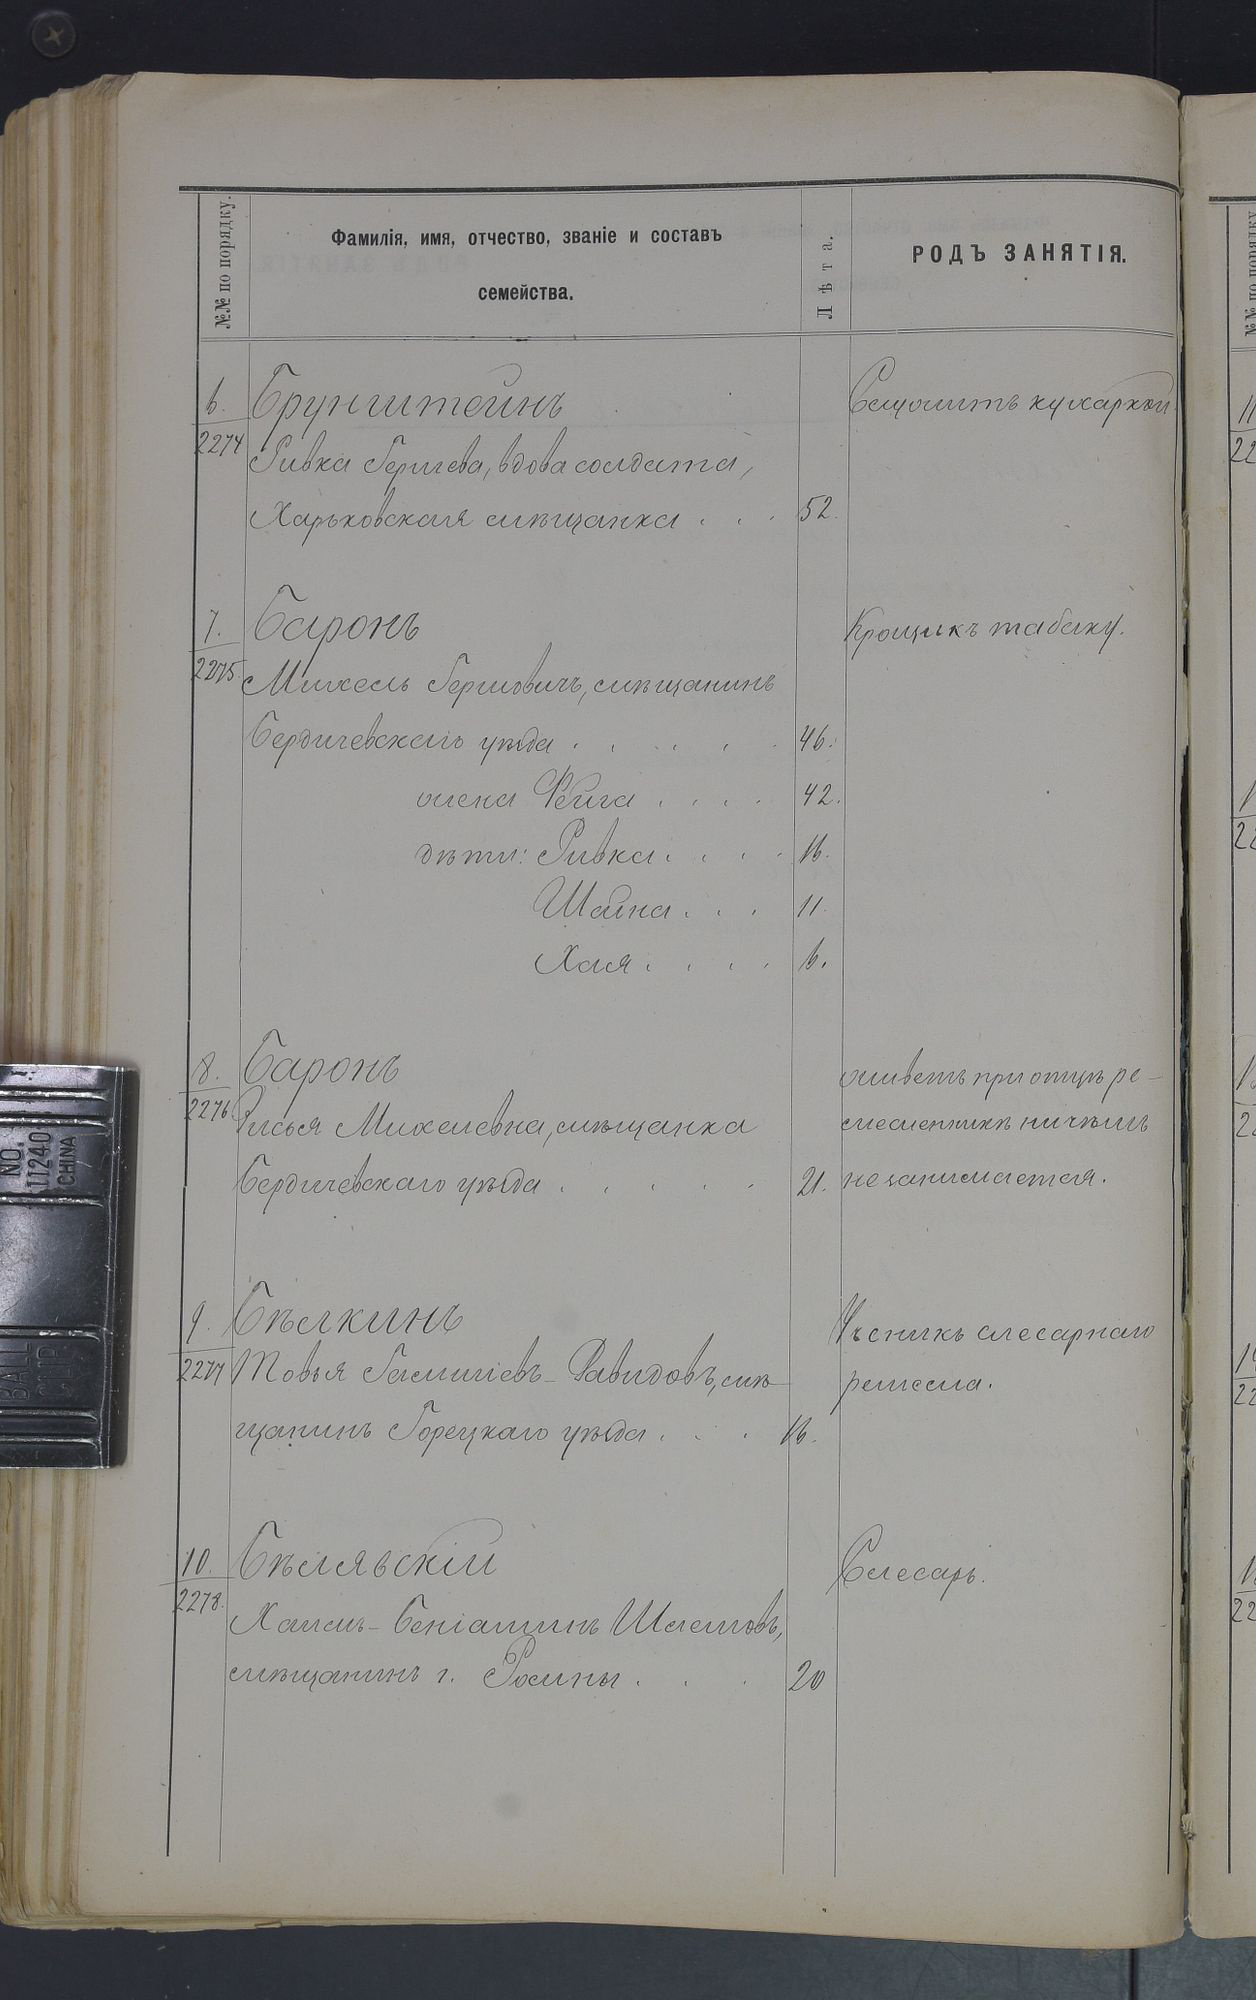 №№ по порядку.
Фамилія, имя, отчество, званіе и составъ
семейства.
Лѣта.
РОДЪ ЗАНЯТІЯ.
6.
2274
Брунштейнъ
Служитъ кухаркой
Ривка Гершева, вдова солдата,
Харьковская мѣщанка . . . 52.
7.
2275
Баронъ
Крощикъ табаку.
Михель Гершовичъ, мѣщанинъ
Бердичевскаго уѣзда . . . . . . 46.
жена Фейга . . . . 42.
дѣти: Ривка . . . . 16.
Шейна . . . 11.
Хая . . . . 6.
8.
2276
Баронъ
живетъ при отцѣ ре-
Эльсья Михелевна, мѣщанка
месленникѣ ничѣмъ
Бердичевскаго уѣзда . . . . . 21.
не занимается.
9.
2277
Бѣлкинъ
Ученикъ слесарнаго
Товья -Давидовъ, мѣ-
ремесла.
щанинъ Горецкаго уѣзда . . . 16.
10.
2278.
Бѣлявскій
Слесарь.
Хаимъ-Беніаминъ Шлемовъ,
мѣщанинъ г. Ромны . . . 20
№№ по порядку
NO.
11240
CHINA
BALL
CLIP